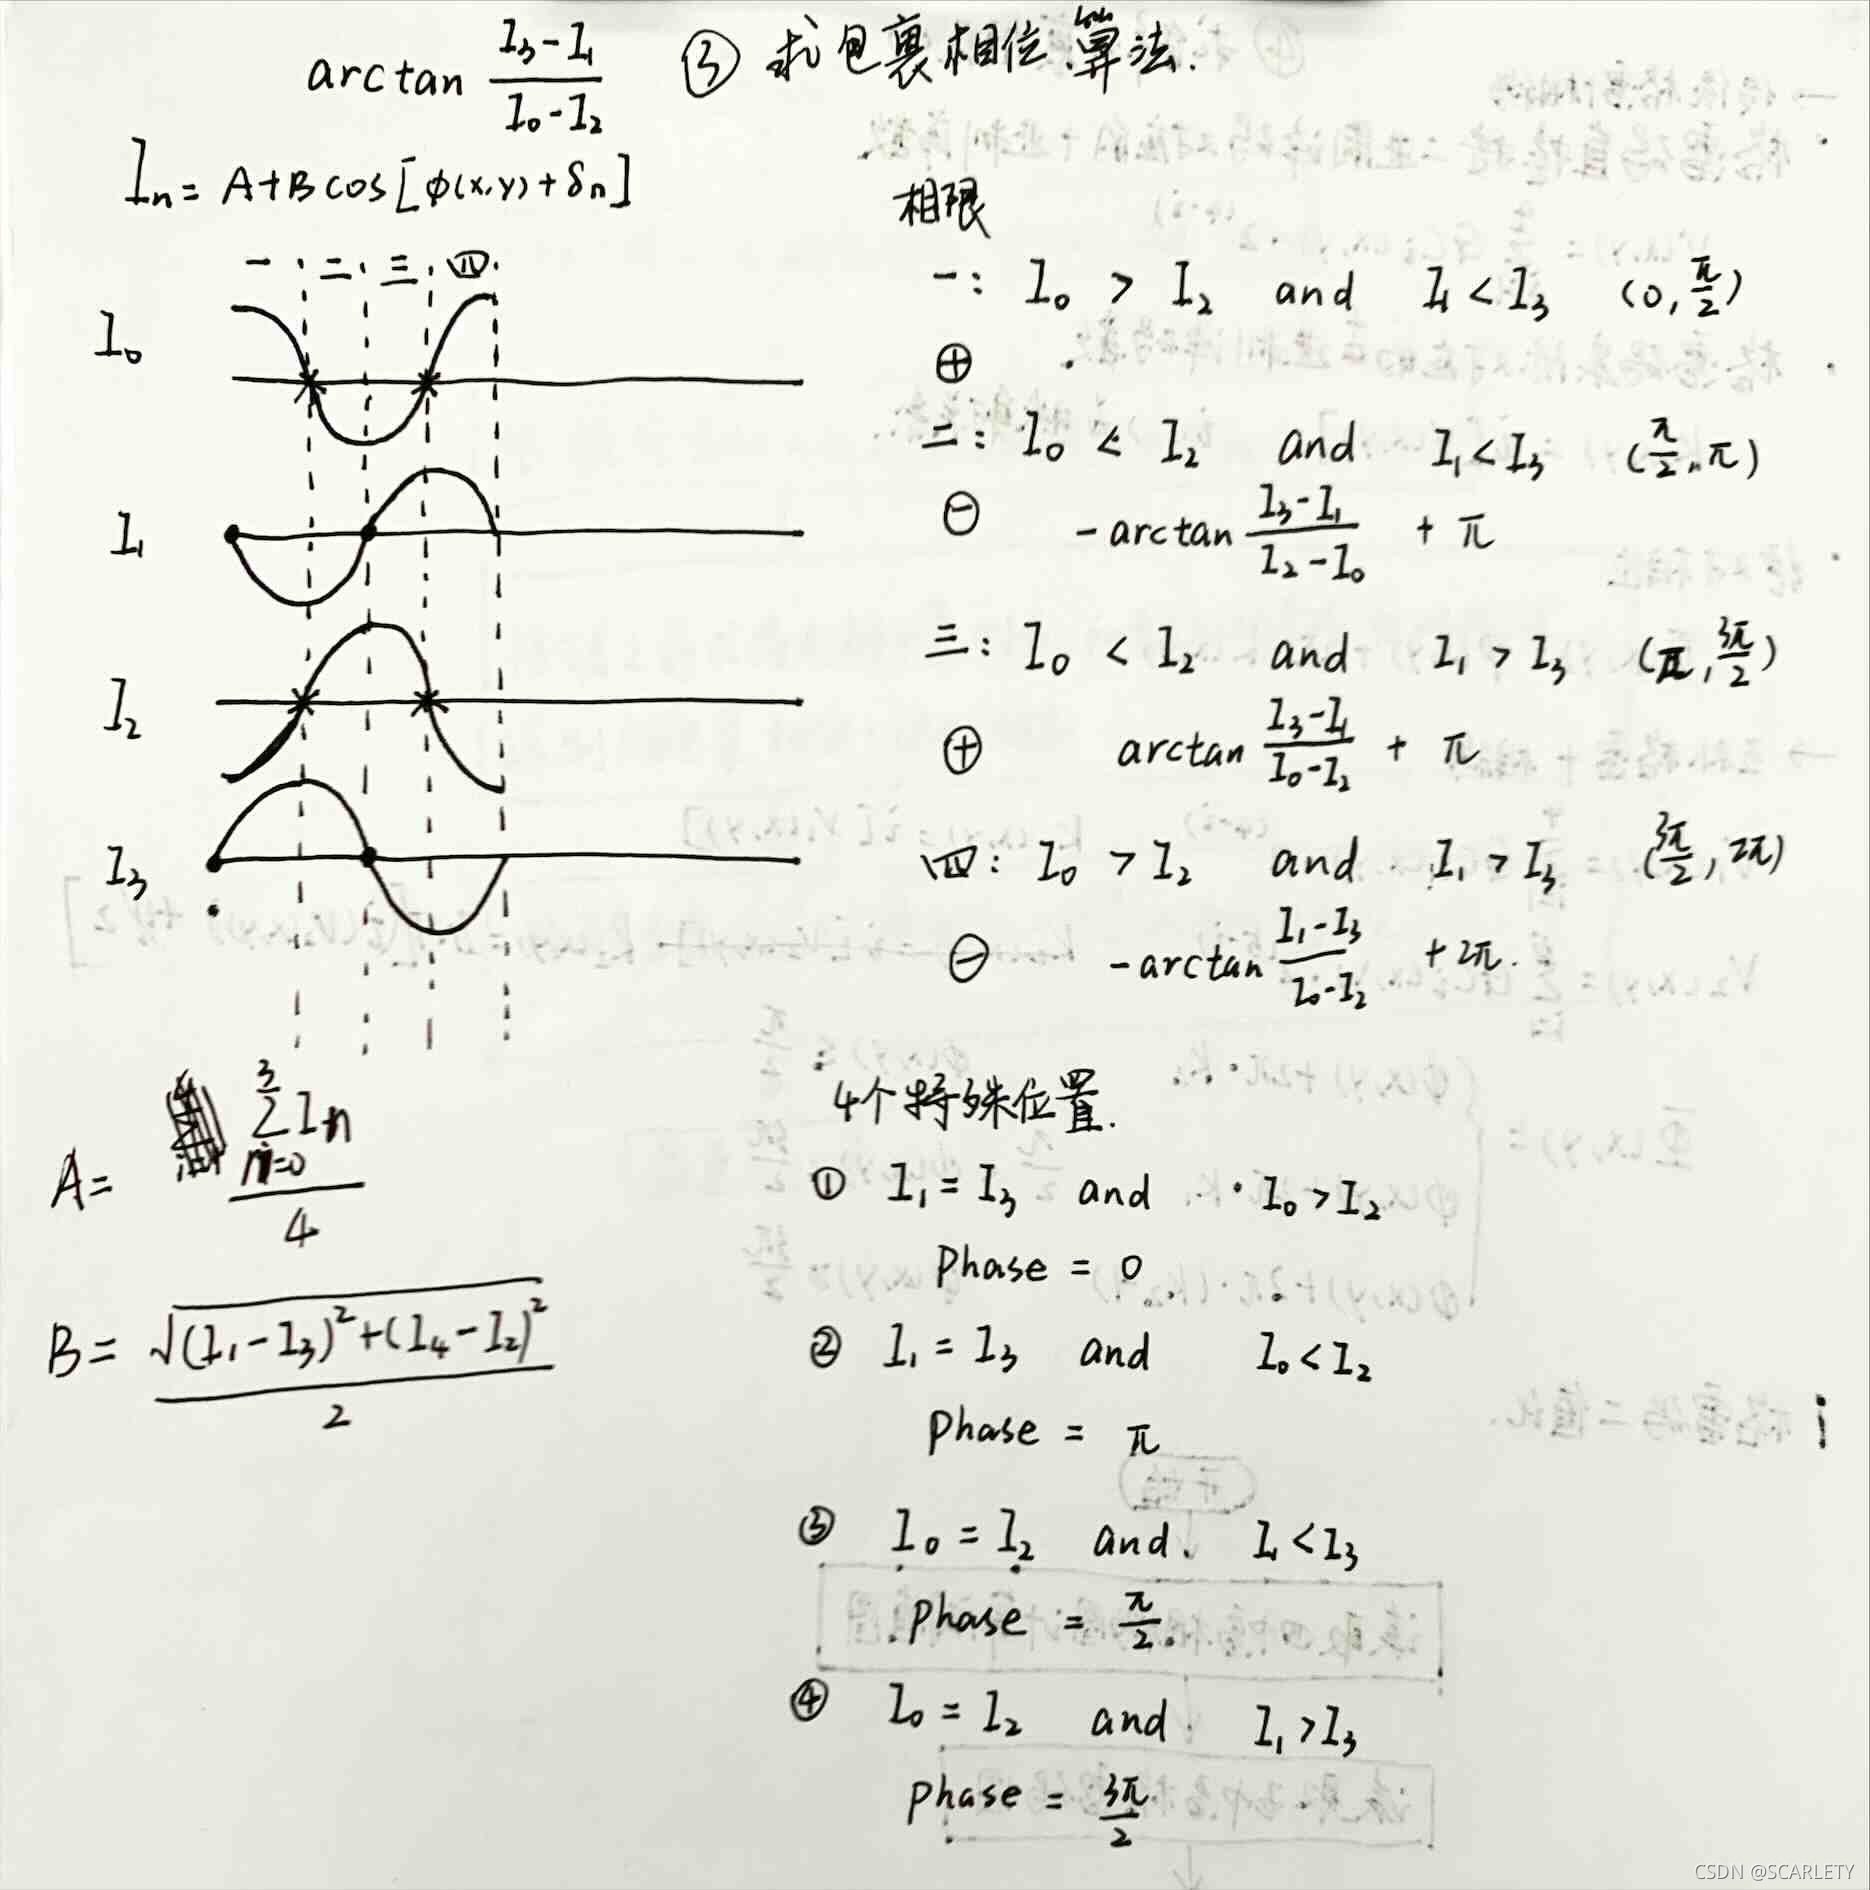 arctan (I₃-I₁)/(I₀-I₂)
③ 求包裹相位算法.
Iₙ = A+Bcos[φ(x,y)+δₙ]
一 二 三 四
I₀
I₁
I₂
I₃
A= (∑(n=0→3) Iₙ)/4
B= √((I₁-I₃)²+(I₄-I₂)²)/2
相限
一: I₀ > I₂ and I₁<I₃ (0, π/2)
⊕
二: I₀ < I₂ and I₁<I₃ (π/2, π)
⊖ -arctan (I₃-I₁)/(I₂-I₀) + π
三: I₀ < I₂ and I₁ > I₃ (π, 3π/2)
⊕ arctan (I₃-I₁)/(I₀-I₂) + π
四: I₀ > I₂ and I₁ > I₃ (3π/2, 2π)
⊖ -arctan (I₁-I₃)/(I₀-I₂) + 2π.
4个特殊位置.
① I₁ = I₃ and I₀ > I₂
Phase = 0
② I₁ = I₃ and I₀ < I₂
Phase = π
③ I₀ = I₂ and I₁ < I₃
Phase = π/2
④ I₀ = I₂ and I₁ > I₃
Phase = 3π/2
CSDN @SCARLETY